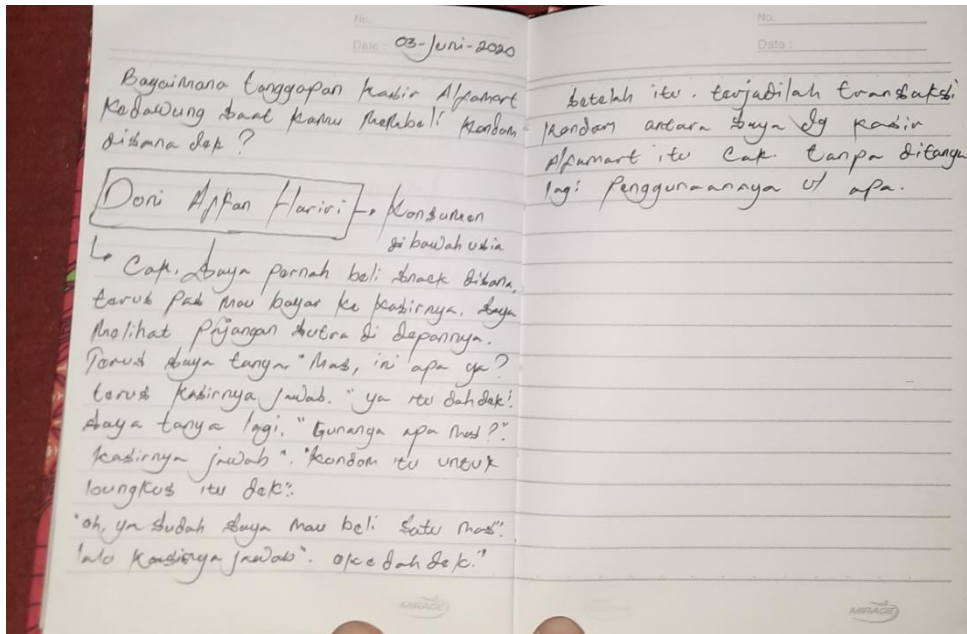 No.
Date : 03-Juni-2020
Bagaimana tanggapan kasir Alfamart
Kedawung saat kamu membeli kondom
disana dek ?
Doni Affan Hariri → Konsumen
di bawah usia
↳ Cak, saya pernah beli snack disana,
terus pas mau bayar ke kasirnya. saya
melihat pajangan sutra di depannya.
Terus saya tanya "Mas, ini apa ya?
terus kasirnya jawab. "ya itu dah dek".
saya tanya lagi. "Gunanya apa mas?".
kasirnya jawab". "kondom itu untuk
bungkus itu dek".
"oh, ya sudah saya mau beli satu mas".
lalu kasirnya jawab". oke dah dek."
MIRAGE
No.
Date :
Setelah itu. terjadilah transaksi
kondom antara saya dg kasir
Alfamart itu Cak. tanpa ditanya
lagi penggunaannya u/ apa.
MIRAGE